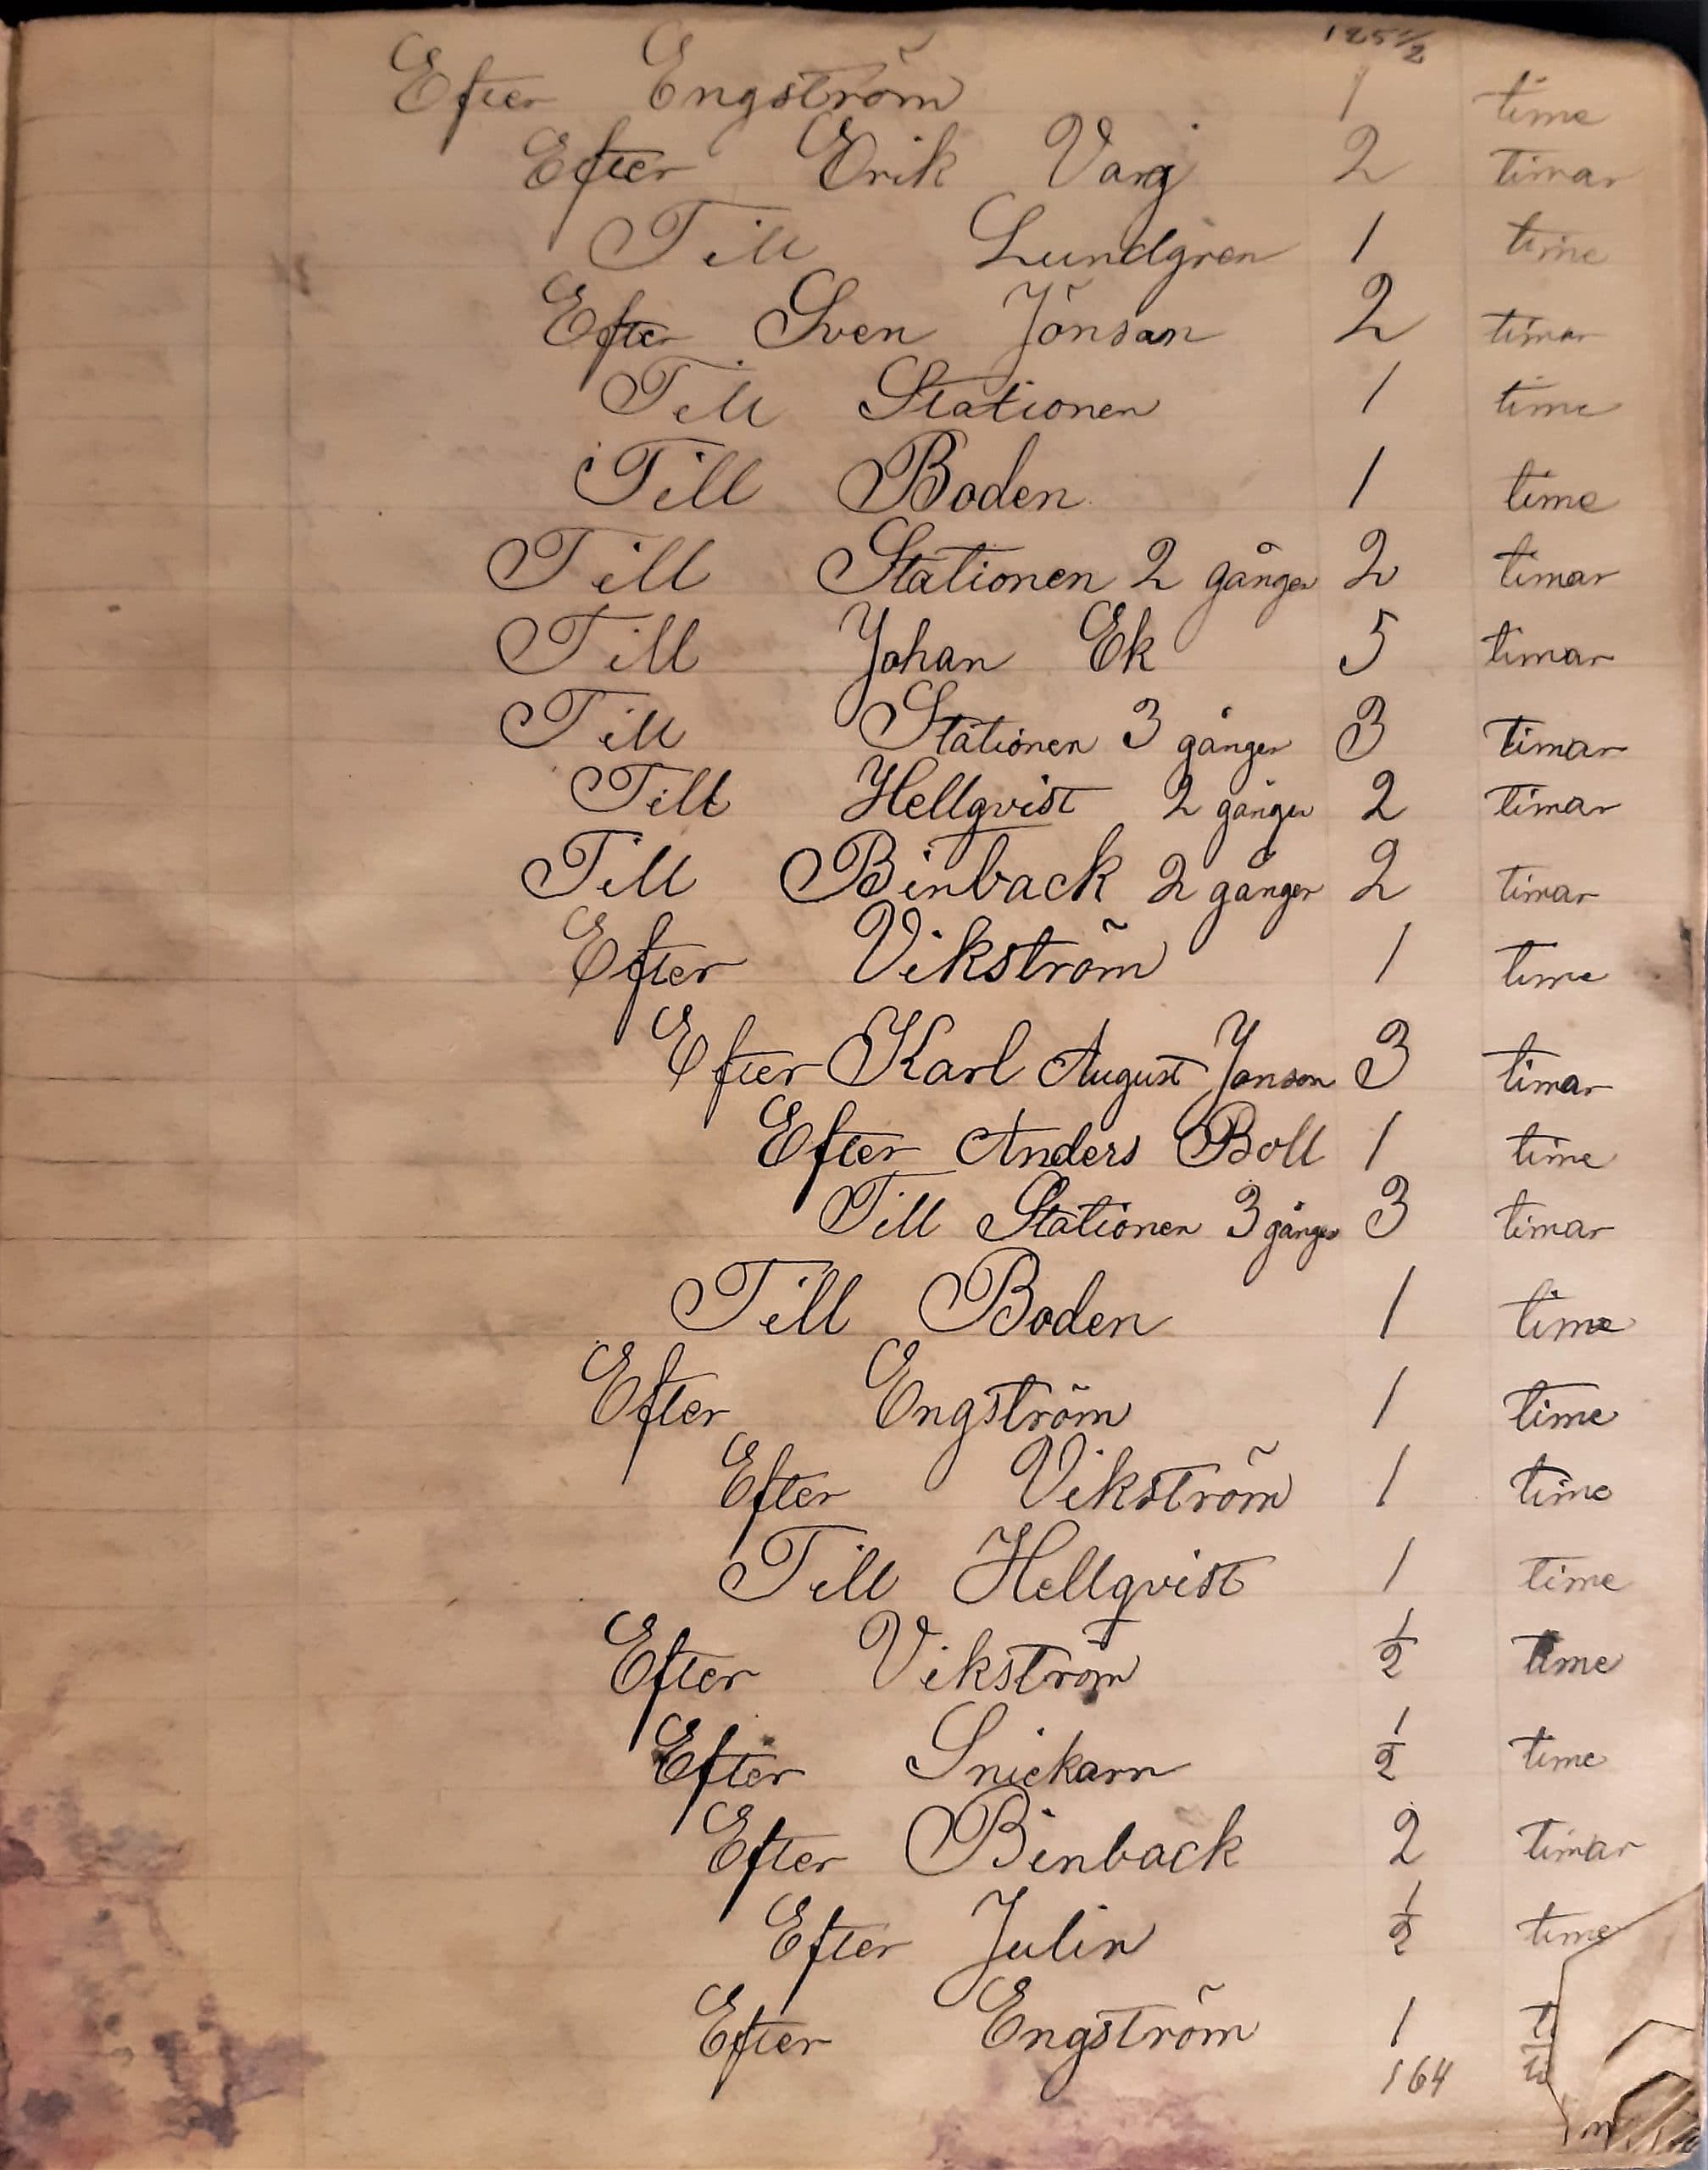 125 1/2
Efter Engström 1 time
Efter Erik Varg 2 timar
Till Lundgren 1 time
Efter Sven Jönsan 2 timar
Till Stationen 1 time
Till Boden 1 time
Till Stationen 2 gånger 2 timar
Till Johan Ek 5 timar
Till Stationen 3 gånger 3 timar
Till Hellqvist 2 gånger 2 timar
Till Binback 2 gånger 2 timar
Efter Vikström 1 time
Efter Karl August Jonson 3 timar
Efter Anders Boll 1 time
Till Stationen 3 gånger 3 timar
Till Boden 1 time
Efter Engström 1 time
Efter Vikström 1 time
Till Hellqvist 1 time
Efter Vikström 1/2 time
Efter Snickarn 1/2 time
Efter Binback 2 timar
Efter Julin 1/2 time
Efter Engström 1
164